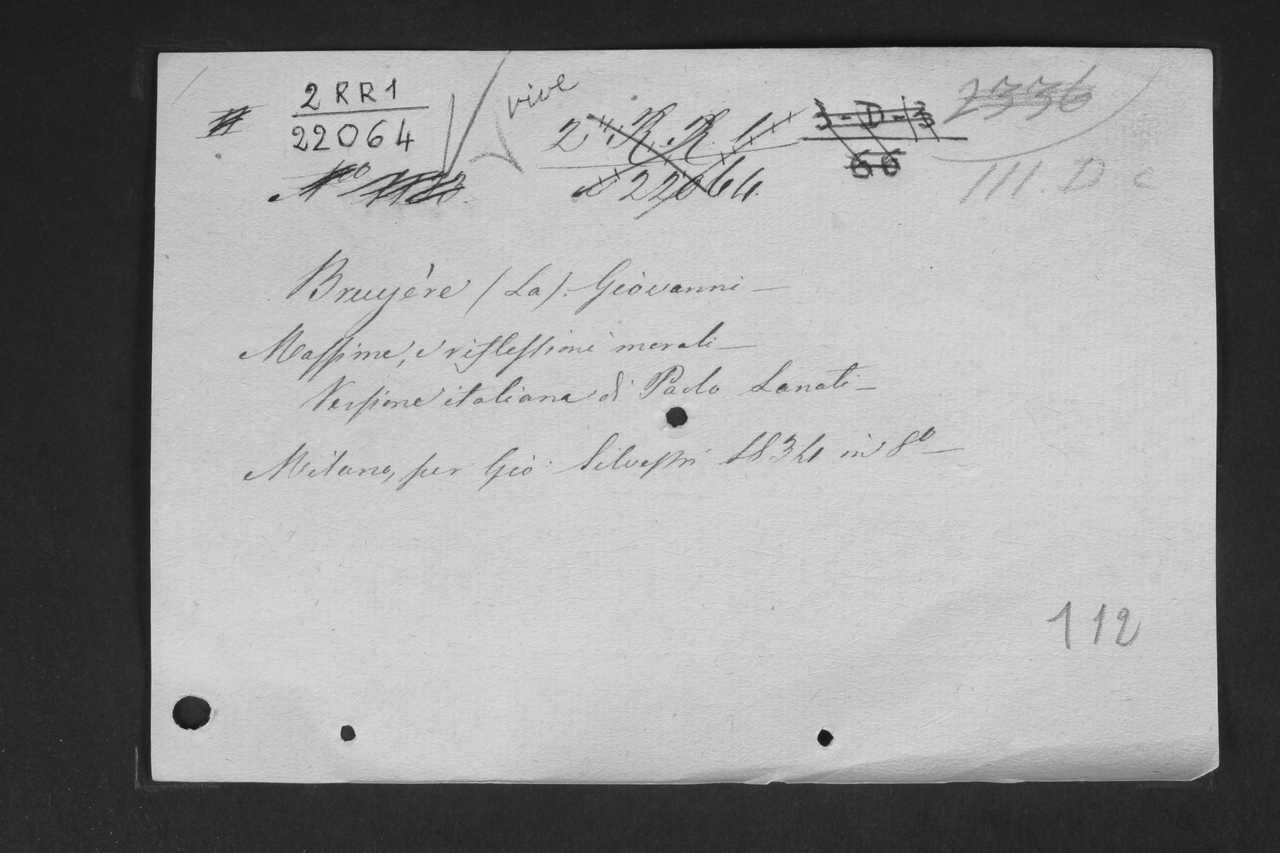 2 RR 1
22064
vive
2 R. R. 1
22064.
1-D-13
60
2336
III. D c
Bruyére (La). Giovanni —
Massime, e riflessioni morali —
Versione italiana di Paolo Lanati —
Milano, per Gio. Silvestri 1834 in 8º —
112